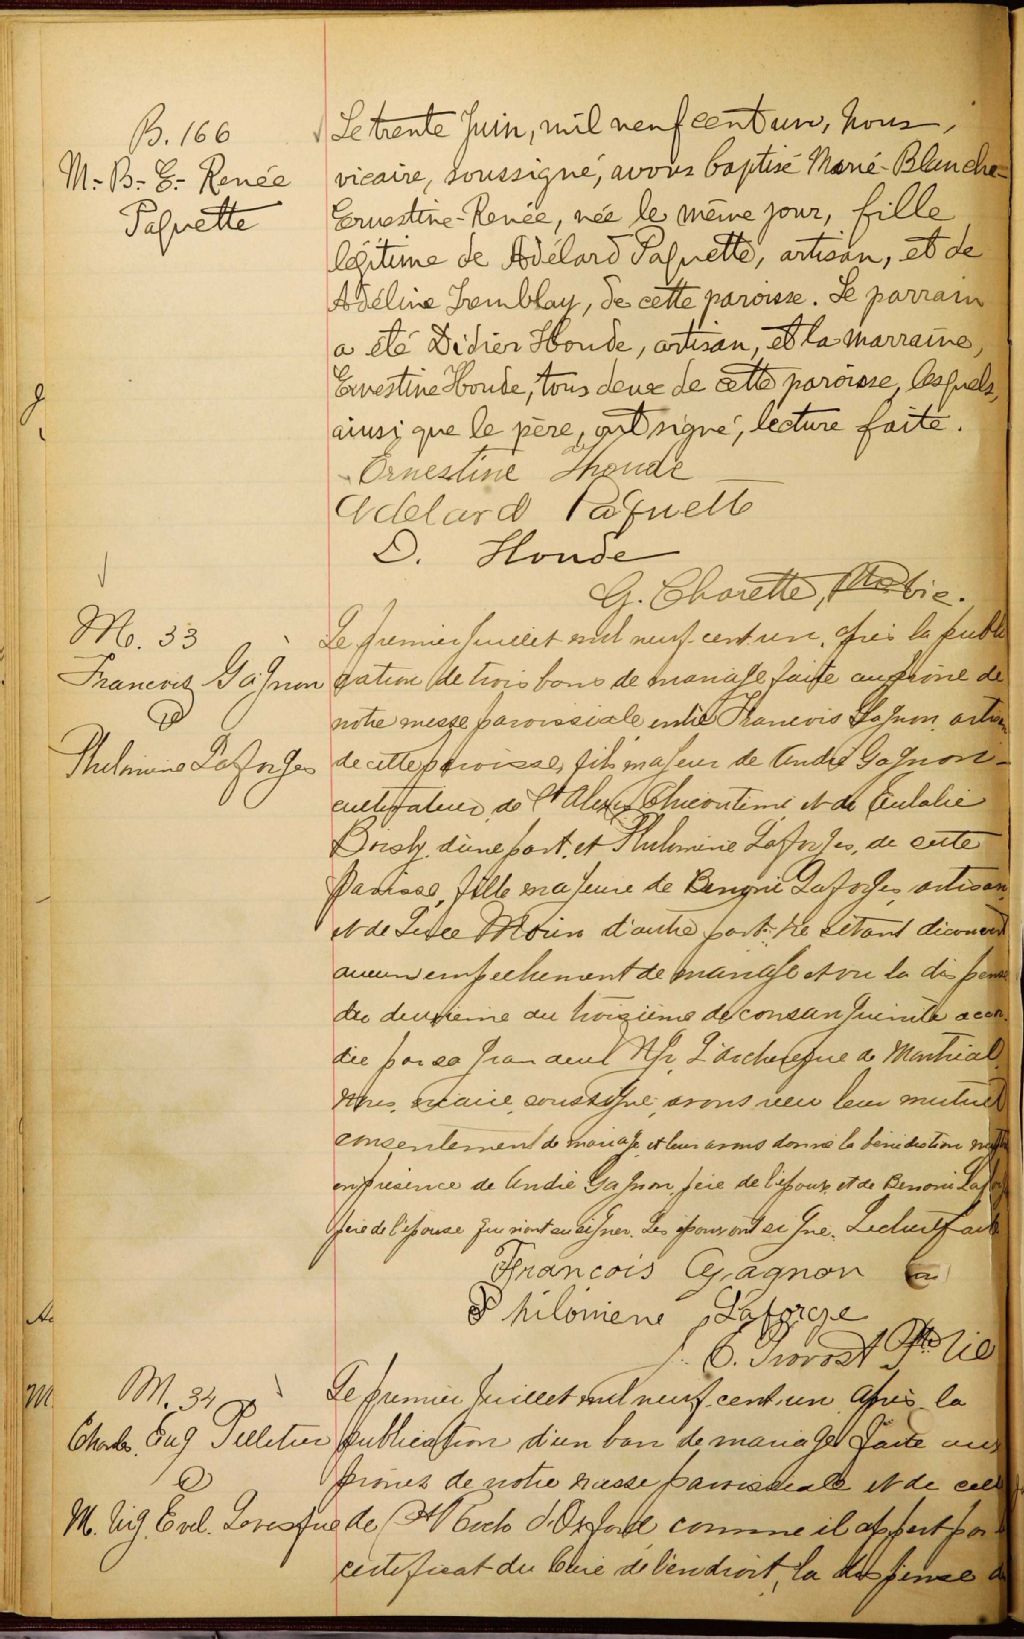 B. 166
M.- B.- E.- Renée
Paquette
Le trente Juin, mil neuf cent un, nous,
vicaire, soussigné, avons baptisé Marie-Blanche-
Ernestine-Renée, née le même jour, fille
légitime de Adélard Paquette, artisan, et de
Adéline Tremblay, de cette paroisse. Le parrain
a été Didier Houde, artisan, et la marraine,
Ernestine Houde, tous deux de cette paroisse, lesquels,
ainsi que le père, ont signé, lecture faite.
Ernestine Houde
Adelard Paquette
D. Houde
G. Charette, Ptre vic.
M. 33
Francois Gagnon
&
Philomine Laforges
Le premier Juillet mil neuf cent un, après la publi
cation de trois bans de mariage faite au prône de
notre messe paroissiale entre Francois Gagnon artisan
de cette paroisse, fils majeur de André Gagnon
cultivateur de St Alexis Chicoutimi et de Eulalie
Boisly, d'une part, et Philomine Laforges, de cette
paroisse, fille majeure de Benoni Laforges artisan
et de Morin d'autre part; ne s'étant découvert
aucun empêchement de mariage et vu la dispense
du deuxième au troisième de consanguinité accor
dée par sa grandeur Mgr L'archevêque de Montréal,
nous, vicaire, soussigné, avons reçu leur mutuel
consentement de mariage et leur avons donné la bénédiction nuptiale
en présence de André Gagnon père de l'époux et de Benoni Laforge
père de l'épouse qui n'ont su signer. Les époux ont signé. Lecture faite
François Gagnon
Philomène Laforge
E. Provost Ptre vic
M. 34
Charles Eug Pelletier
&
M. Vig. Evel. Levesque
Le premier Juillet mil neuf cent un après la
publication d'un ban de mariage faite aux
prônes de notre messe paroissiale et de celle
de St Roch d'Orford comme il appert par le
certificat du Curé de l'endroit, la dispense de